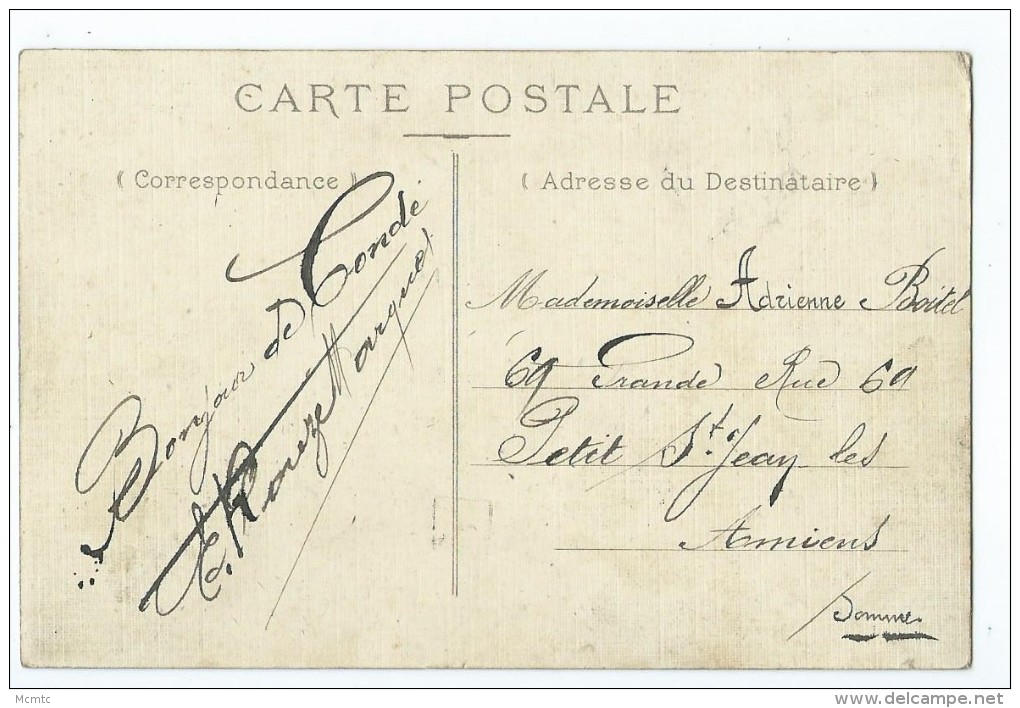 CARTE POSTALE
( Correspondance )
Bonjour de Condé
( Adresse du Destinataire )
Mademoiselle Adrienne Boitel
69 Grande Rue 69
Petit St. Jean les
Amiens
Somme
Mcmtc
www.delcampe.net